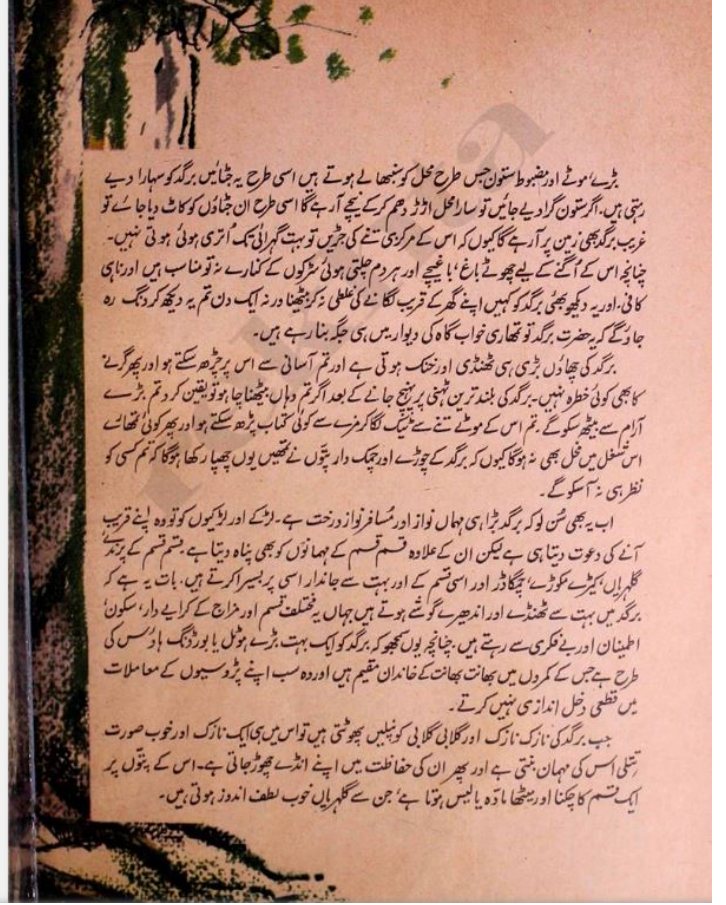 بڑے، موٹے اور مضبوط ستون جس طرح محل کو سنبھالے ہوتے ہیں اسی طرح یہ جٹائیں برگد کو سہارا دیے
رہتی ہیں۔ اگر ستون گرا دیے جائیں تو سارا محل اڑڑ دھم کرکے نیچے آرہے گا اسی طرح ان جٹاؤں کو کاٹ دیا جائے تو
غریب برگد بھی زمین پر آرہے گا کیوں کہ اس کے مرکزی تنے کی جڑیں تو بہت گہرائی تک اُتری ہوئی ہوتی نہیں۔
چنانچہ اس کے اُگنے کے لیے چھوٹے باغ، باغیچے اور ہر دم چلتی ہوئی سڑکوں کے کنارے نہ تو مناسب ہیں اور نا ہی
کافی۔ اور یہ دیکھو بھئی برگد کو کہیں اپنے گھر کے قریب لگانے کی غلطی نہ کر بیٹھنا ورنہ ایک دن تم یہ دیکھ کر دنگ رہ
جاؤ گے کہ یہ حضرت برگد تو تمھاری خواب گاہ کی دیوار میں ہی جگہ بنا رہے ہیں۔
برگد کی چھاؤں بڑی ہی ٹھنڈی اور خنک ہوتی ہے اور تم آسانی سے اس پر چڑھ سکتے ہو اور پھر گرنے
کا بھی کوئی خطرہ نہیں۔ برگد کی بلند ترین ٹہنی پر پہنچ جانے کے بعد اگر تم وہاں بیٹھنا چاہو تو یقین کر دتم بڑے
آرام سے بیٹھ سکو گے۔ تم اس کے موٹے تنے سے ٹیک لگا کر مزے سے کوئی کتاب پڑھ سکتے ہو اور پھر کوئی تمھارے
اس شغل میں مخل بھی نہ ہوگا کیوں کہ برگد کے چوڑے اور چمک دار پتّوں نے تمھیں یوں چھپا رکھا ہوگا کہ تم کسی کو
نظر ہی نہ آسکو گے۔
اب یہ بھی سُن لو کہ برگد بڑا ہی مہماں نواز اور مُسافر نواز درخت ہے۔ لڑکے اور لڑکیوں کو تو وہ اپنے قریب
آنے کی دعوت دیتا ہی ہے لیکن ان کے علاوہ قسم قسم کے مہمانوں کو بھی پناہ دیتا ہے۔ قسم قسم کے پرندے،
گلہریاں، کیڑے مکوڑے، چمگادڑ اور اسی قسم کے اور بہت سے جاندار اسی پر بسیرا کرتے ہیں۔ بات یہ ہے کہ
برگد میں بہت سے ٹھنڈے اور اندھیرے گوشے ہوتے ہیں جہاں یہ مختلف قسم اور مزاج کے کرایے دار، سکون،
اطمینان اور بے فکری سے رہتے ہیں۔ چنانچہ یوں سمجھو کہ برگد کو ایک بہت بڑے ہوٹل یا بورڈنگ ہاؤس کی
طرح ہے جس کے کمروں میں بھانت بھانت کے خاندان مقیم ہیں اور وہ سب اپنے پڑوسیوں کے معاملات
میں قطعی دخل اندازی نہیں کرتے۔
جب برگد کی نازک نازک اور گلابی گلابی کونپلیں پھوٹتی ہیں تو اس میں ہی ایک نازک اور خوب صورت
تتلی اس کی مہمان بنتی ہے اور پھر ان کی حفاظت میں اپنے انڈے چھوڑ جاتی ہے۔ اس کے پتّوں پر
ایک قسم کا چکنا اور میٹھا مادّہ یا لیس ہوتا ہے، جن سے گلہریاں خوب لطف اندوز ہوتی ہیں۔